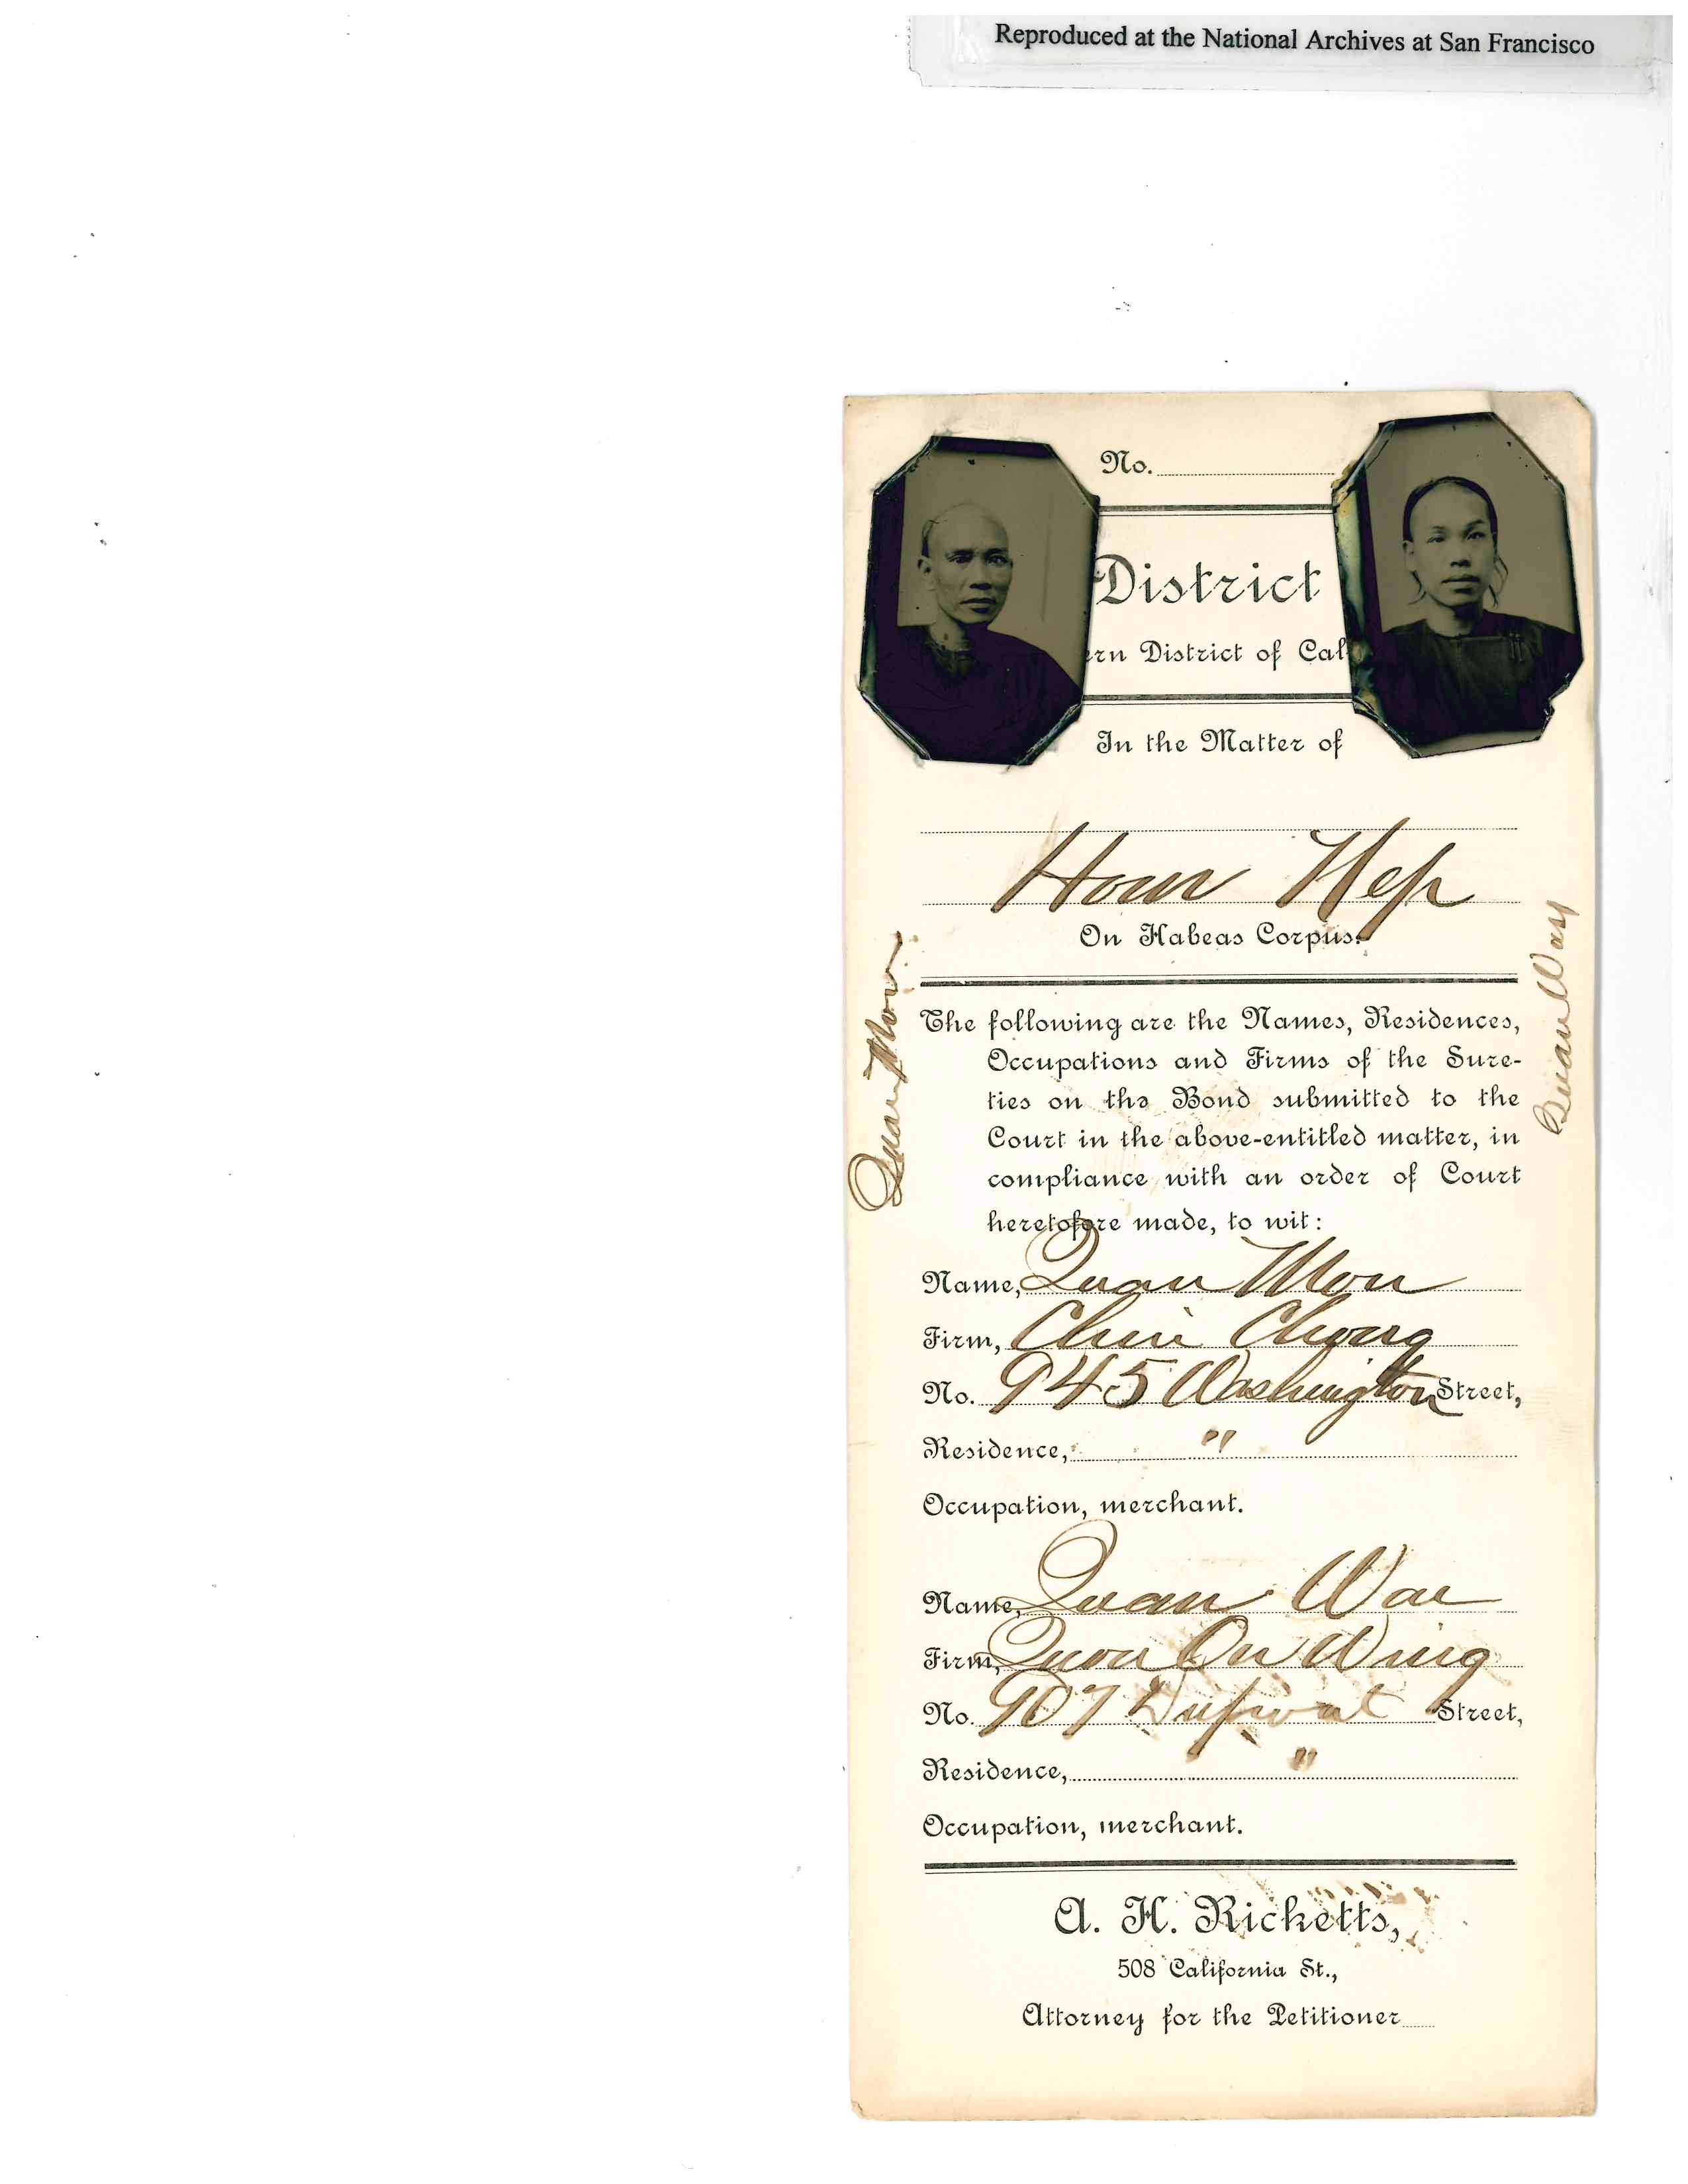 Reproduced at the National Archives at San Francisco
No.
District
ern District of Cal
In the Matter of
Hour Hep
On Habeas Corpus.
The following are the Names, Residences,
Occupations and Firms of the Sure-
ties on the Bond submitted to the
Court in the above-entitled matter, in
compliance with an order of Court
heretofore made, to wit:
Name, Quan Mou
Firm, Chong
No. 945 Washington Street,
Residence, "
Occupation, merchant.
Name, Quan Wae
Firm, Quon On Wing
No. 907 Dupont Street,
Residence, "
Occupation, merchant.
A. H. Ricketts,
508 California St.,
Attorney for the Petitioner
Quan Mou
Quan Way